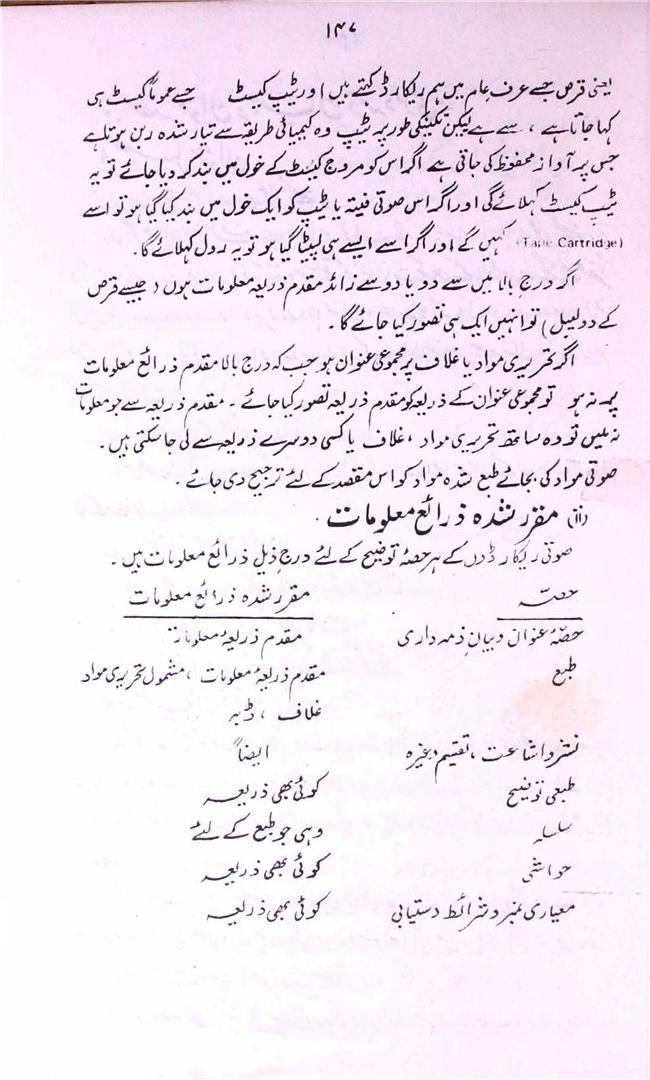 ۱۴۷
یعنی قرص جسے عرف عام میں ہم ریکارڈ کہتے ہیں اور ٹیپ کیسٹ جسے عموماً کیسٹ ہی
کہا جاتا ہے ، سے ہے لیکن تکنیکی طور پر ٹیپ وہ کیمیائی طریقہ سے تیار شدہ ربن ہوتا ہے
جس پر آواز محفوظ کی جاتی ہے اگر اس کو مروج کیسٹ کے خول میں بند کر دیا جائے تو یہ
ٹیپ کیسٹ کہلائے گی اور اگر اس صوتی فیتہ یا ٹیپ کو ایک خول میں بند کیا گیا ہو تو اسے
(Tape Cartridge) کہیں گے اور اگر اسے ایسے ہی لپیٹا گیا ہو تو یہ رول کہلائے گا۔
اگر درج بالا میں سے دو یا دو سے زائد مقدم ذریعہ معلومات ہوں ( جیسے قرص
کے دو لیبل ) تو انہیں ایک ہی تصور کیا جائے گا۔
اگر تحریری مواد یا غلاف پر مجموعی عنوان ہو جب کہ درج بالا مقدم ذرائع معلومات
پر نہ ہو تو مجموعی عنوان کے ذریعہ کو مقدم ذریعہ تصور کیا جائے ۔ مقدم ذریعہ سے جو معلومات
نہ ملیں تو وہ ساتھ تحریری مواد ، غلاف یا کسی دوسرے ذریعہ سے لی جا سکتی ہیں ۔
صوتی مواد کی بجائے طبع شدہ مواد کو اس مقصد کے لئے ترجیح دی جائے ۔
(ii) مقرر شدہ ذرائع معلومات ۔
صوتی ریکارڈوں کے ہر حصۂ توضیح کے لئے درج ذیل ذرائع معلومات ہیں ۔
حصہ مقرر شدہ ذرائع معلومات
حصّۂ عنوان و بیانِ ذمہ داری مقدم ذریعۂ معلومات
طبع مقدم ذریعۂ معلومات ، مشمول تحریری مواد
غلاف ، ڈبہ
نشر و اشاعت ، تقسیم وغیرہ ایضاً
طبعی توضیح کوئی بھی ذریعہ
سلسلہ وہی جو طبع کے لئے
حواشی کوئی بھی ذریعہ
معیاری نمبر و شرائط دستیابی کوئی بھی ذریعہ